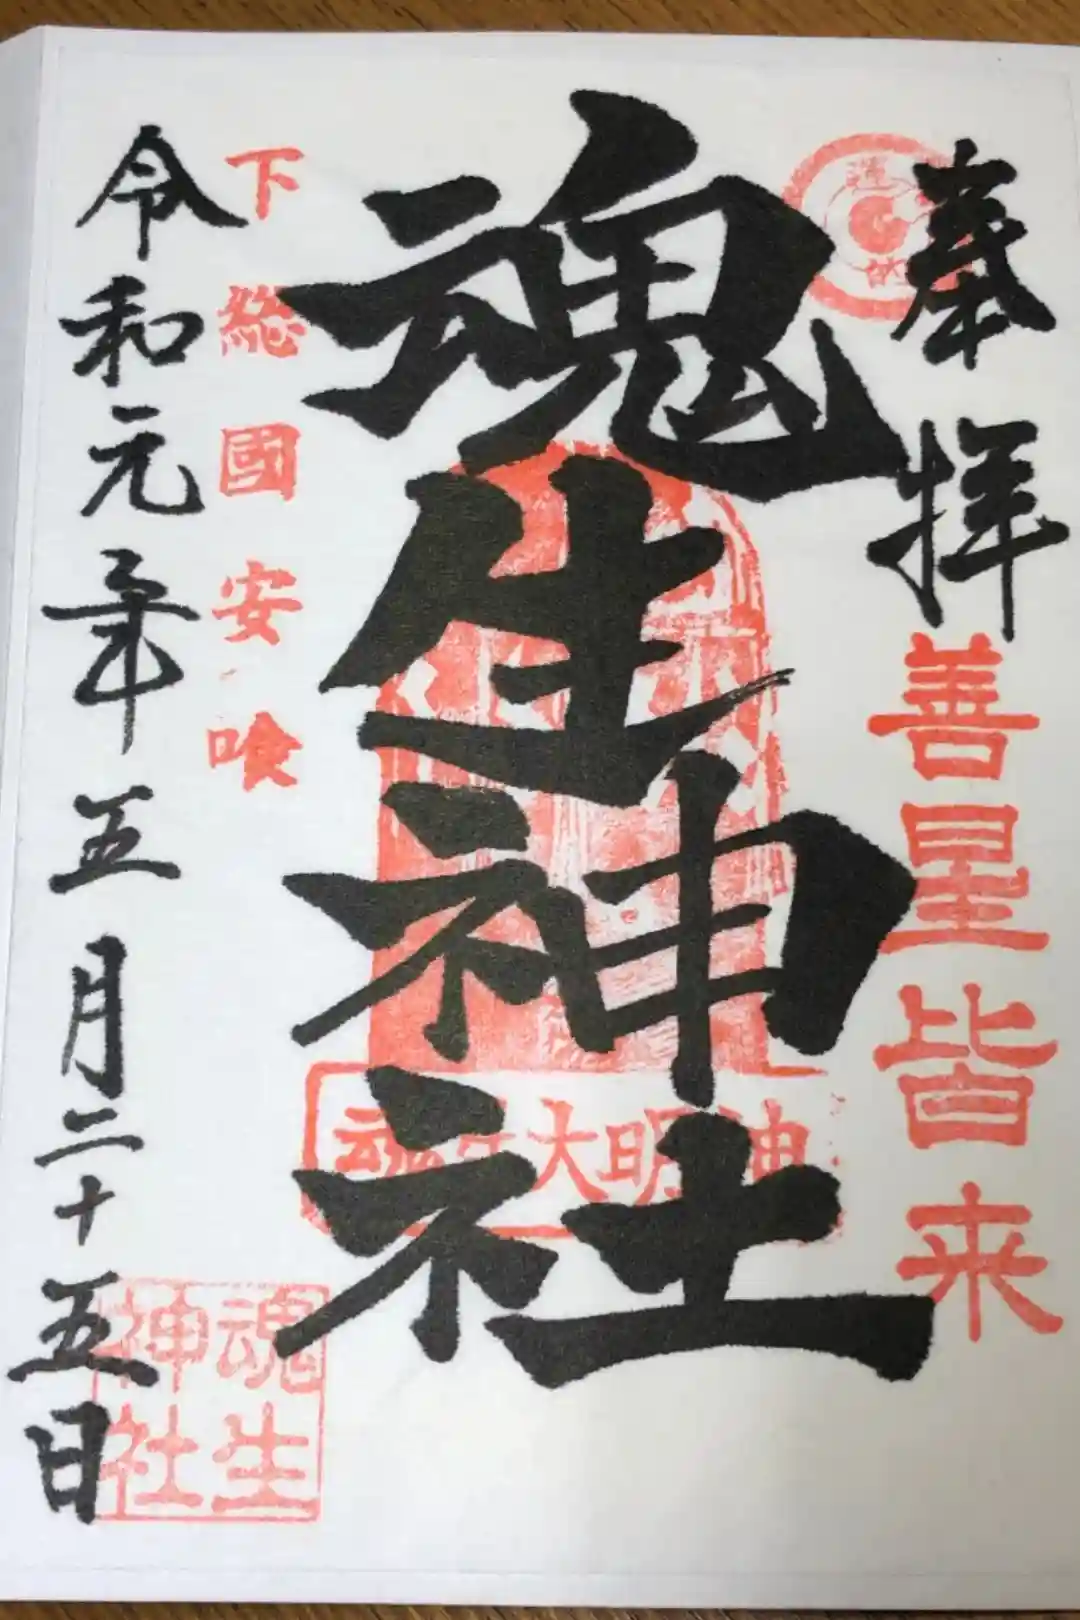 奉拝
善星皆来
魂生神社
魂生大明神
下総國安喰
令和元年五月二十五日
魂生
神社